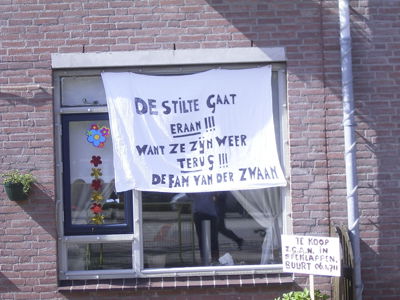 DE STILTE GAAT
ERAAN!!!
WANT ZE ZIJN WEER
TERUG!!!
DE FAM VAN DER ZWAAN
TE KOOP
Z.G.A.N. IN
BUURT